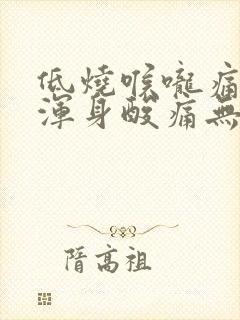 低燒喉嚨痛
渾身酸痛無
隋高祖